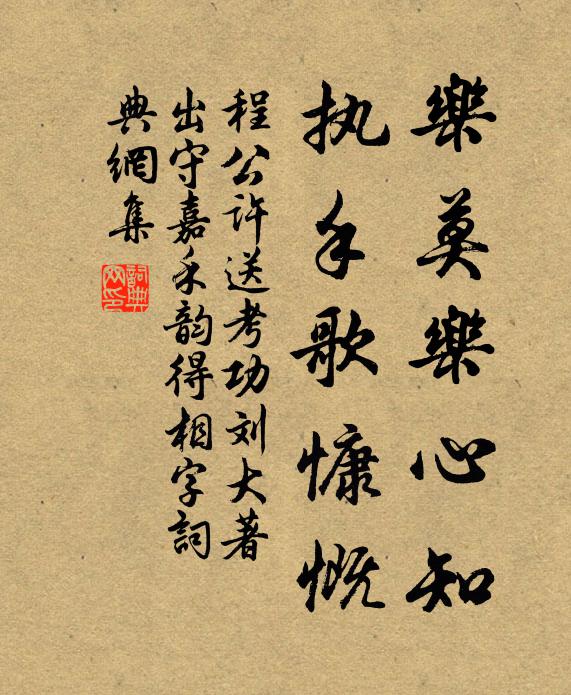 樂莫樂心知
执手歌慷慨
程公许送考功刘大著
出守嘉禾韵得相字詞
典網集
詞典网印